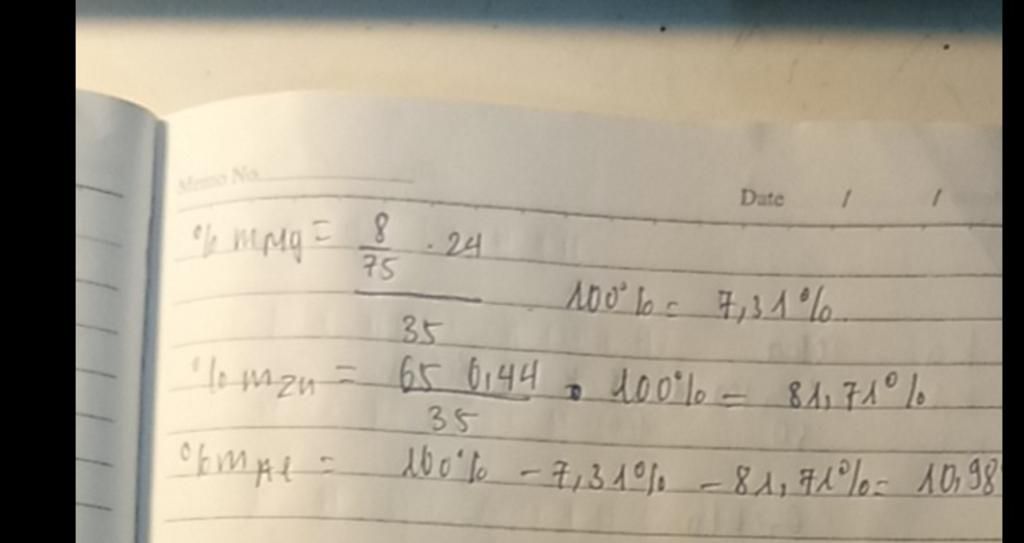 Memo No.
Date / /
% mMg = 8/75 · 24
100% = 7,31%
35
% mZn = 65 0,44 · 100% = 81,71%
35
% mAl = 100% - 7,31% - 81,71% = 10,98